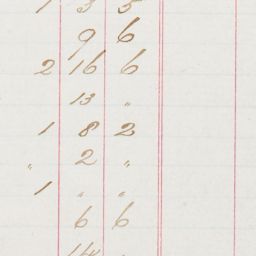 1 3 5
9 6
2 16 6
13 "
1 8 2
" 2 "
1 " "
6 6
14